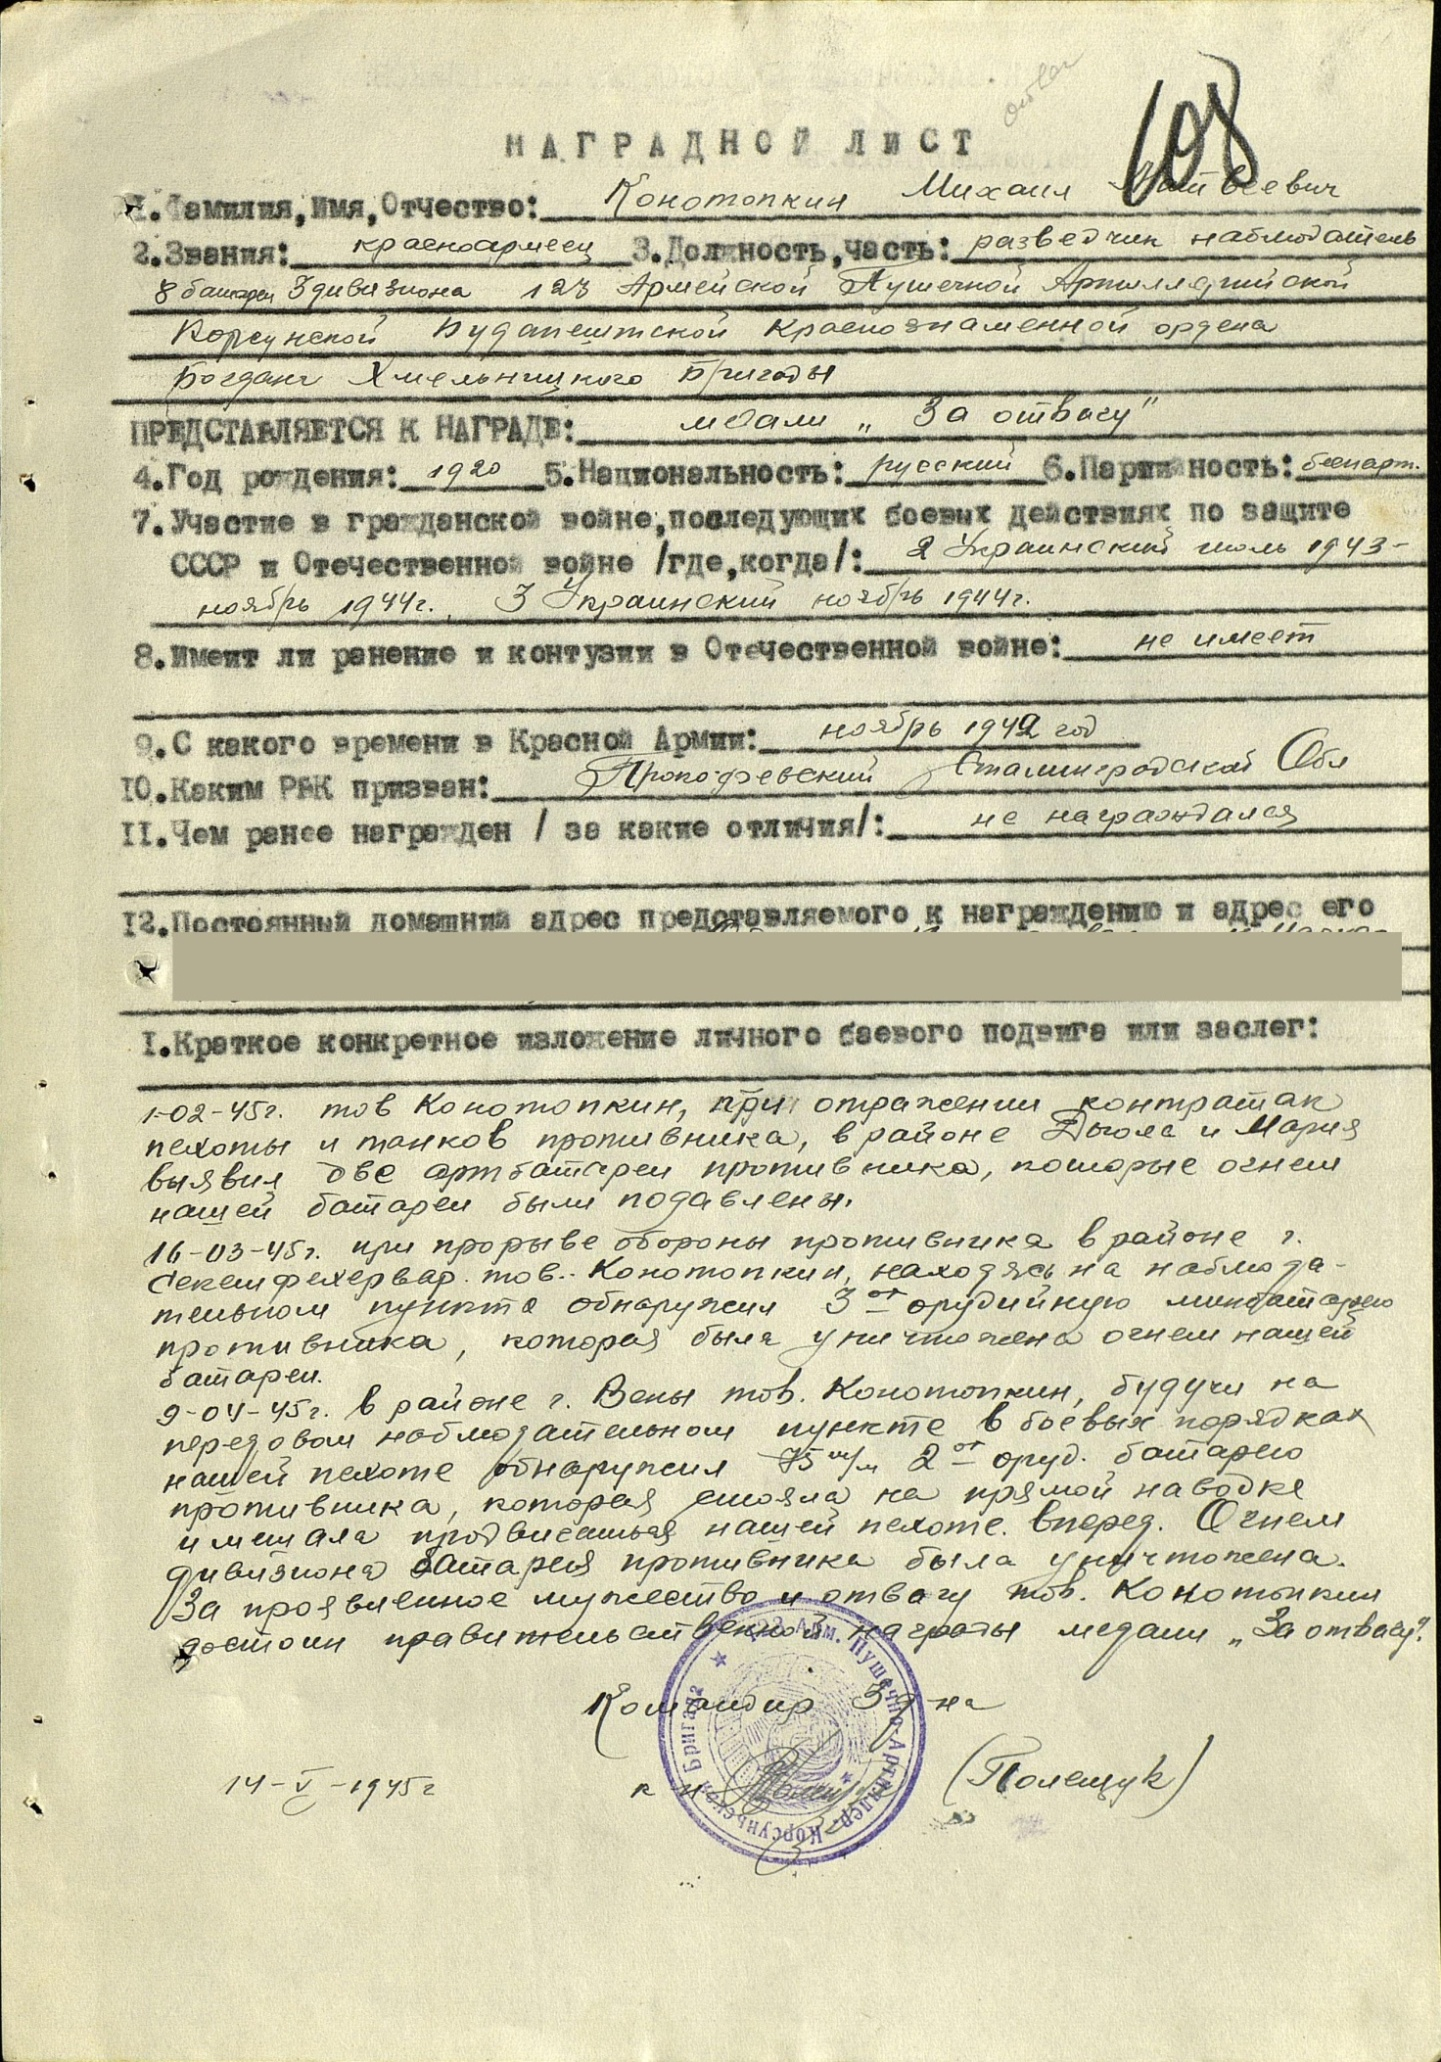 108
НАГРАДНОЙ ЛИСТ
1.Фамилия,Имя,Отчество: Конотопкин Михаил Матвеевич
2.Звания: красноармеец 3.Должность,часть: разведчик наблюдатель
8 батареи 3 дивизиона 123 Армейской Пушечной Артиллерийской
Корсунской Будапештской Краснознаменной ордена
Богдана Хмельницкого Бригады
ПРЕДСТАВЛЯЕТСЯ К НАГРАДЕ: медали „За отвагу"
4.Год рождения: 1920 5.Национальность: русский 6.Партийность: беспарт.
7.Участие в гражданской войне,последующих боевых действиях по защите
СССР и Отечественной войне /где,когда/: 2 Украинский июль 1943-
ноябрь 1944г., 3 Украинский ноябрь 1944г.
8.Имеит ли ранение и контузии в Отечественной войне: не имеет
9.С какого времени в Красной Армии: ноябрь 1942 год
10.Каким РВК призван: Прокофевский Сталинградской Обл
11.Чем ранее награжден / за какие отличия/: не награждался
12.Постоянный домашний адрес представляемого к награждению и адрес его
I.Краткое конкретное изложение личного баевого подвига или заслег:
1-02-45г. тов Конотопкин, при отражении контратак
пехоты и танков противника, в районе Дьюла и Мария
выявил две артбатареи противника, которые огнем
нашей батареи были подавлены.
16-03-45г. при прорыве обороны противника в районе г.
Секешфехервар. тов. Конотопкин, находясь на наблюда-
тельном пункте обнаружил 3от орудийную минбатарею
противника, которая была уничтожена огнем нашей
батареи.
9-04-45г. в районе г. Вены тов. Конотопкин, будучи на
передовом наблюдательном пункте в боевых порядках
нашей пехоте обнаружил 75 м/м 2от оруд. батарею
противника, которая стояла на прямой наводке
и мешала продвигаться нашей пехоте вперед. Огнем
дивизиона батарея противника была уничтожена.
За проявленное мужество и отвагу тов. Конотопкин
достоин правительственной награды медали „За отвагу".
Командир 3 д-на
14-V-1945г к-н (Полещук)
123 Арм. Пушечно-Артиллер. Корсуньской Бригада